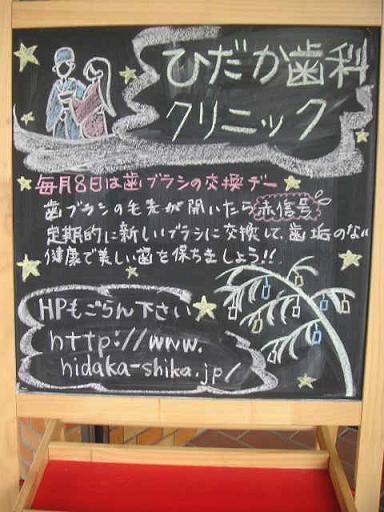 ひだか歯科
クリニック
毎月8日は歯ブラシの交換デー
歯ブラシの毛先が開いたら赤信号
定期的に新しいブラシに交換して、歯垢のない
健康で美しい歯を保ちましょう!!
HPもごらん下さい
http://www.
hidaka-shika.jp/